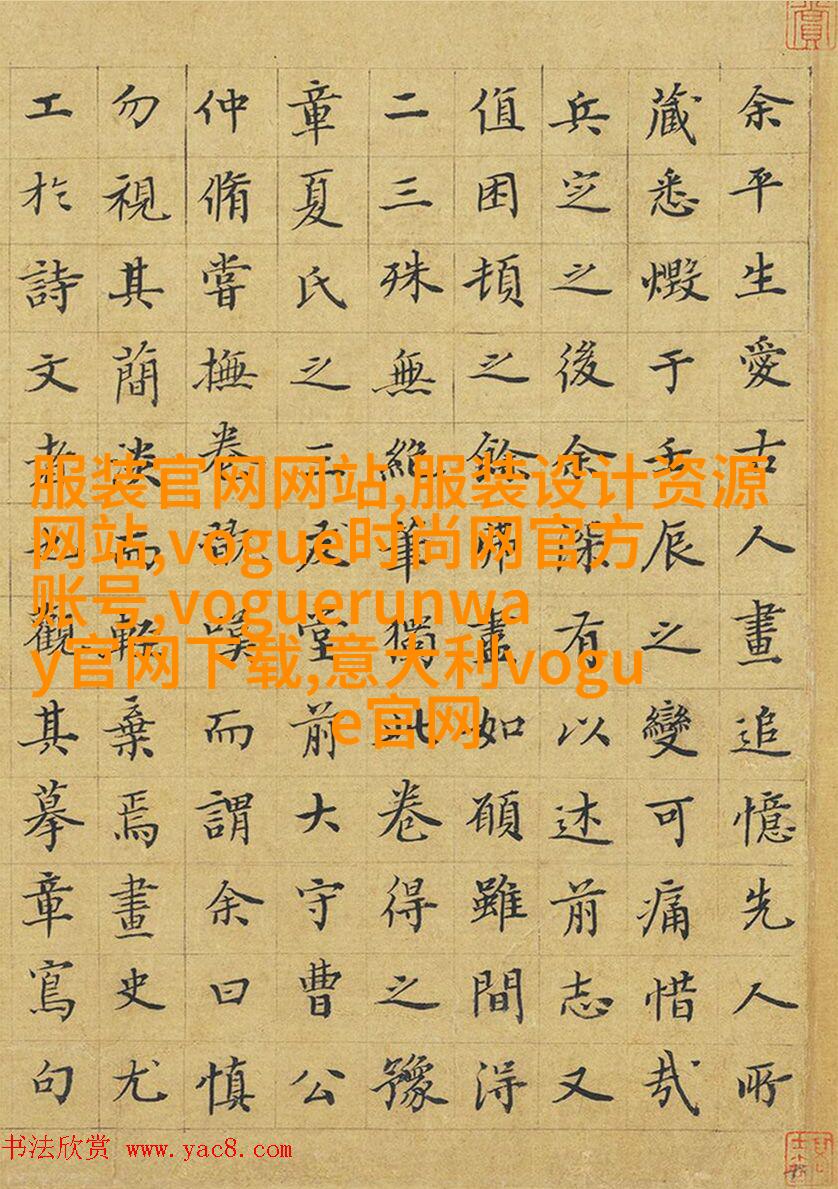 余平生愛古人畫追憶先人所
藏悉燬于壬辰之變可痛惜哉
兵定之後余深有以述前志又
值困頓之餘盡如願雖間得
二三殊無絕筆獨此卷得之豫
章夏氏之三友堂前大守曹公
仲脩嘗撫卷嘆而謂余曰慎
勿視其簡淡而輕棄焉畫史尤
工於詩文者也觀其摹章寫句
服装官网网站,服装设计资源
网站,vogue时尚网官方
账号,voguerunwa
y官网下载,意大利vogu
e官网
书法欣赏 www.yac8.com